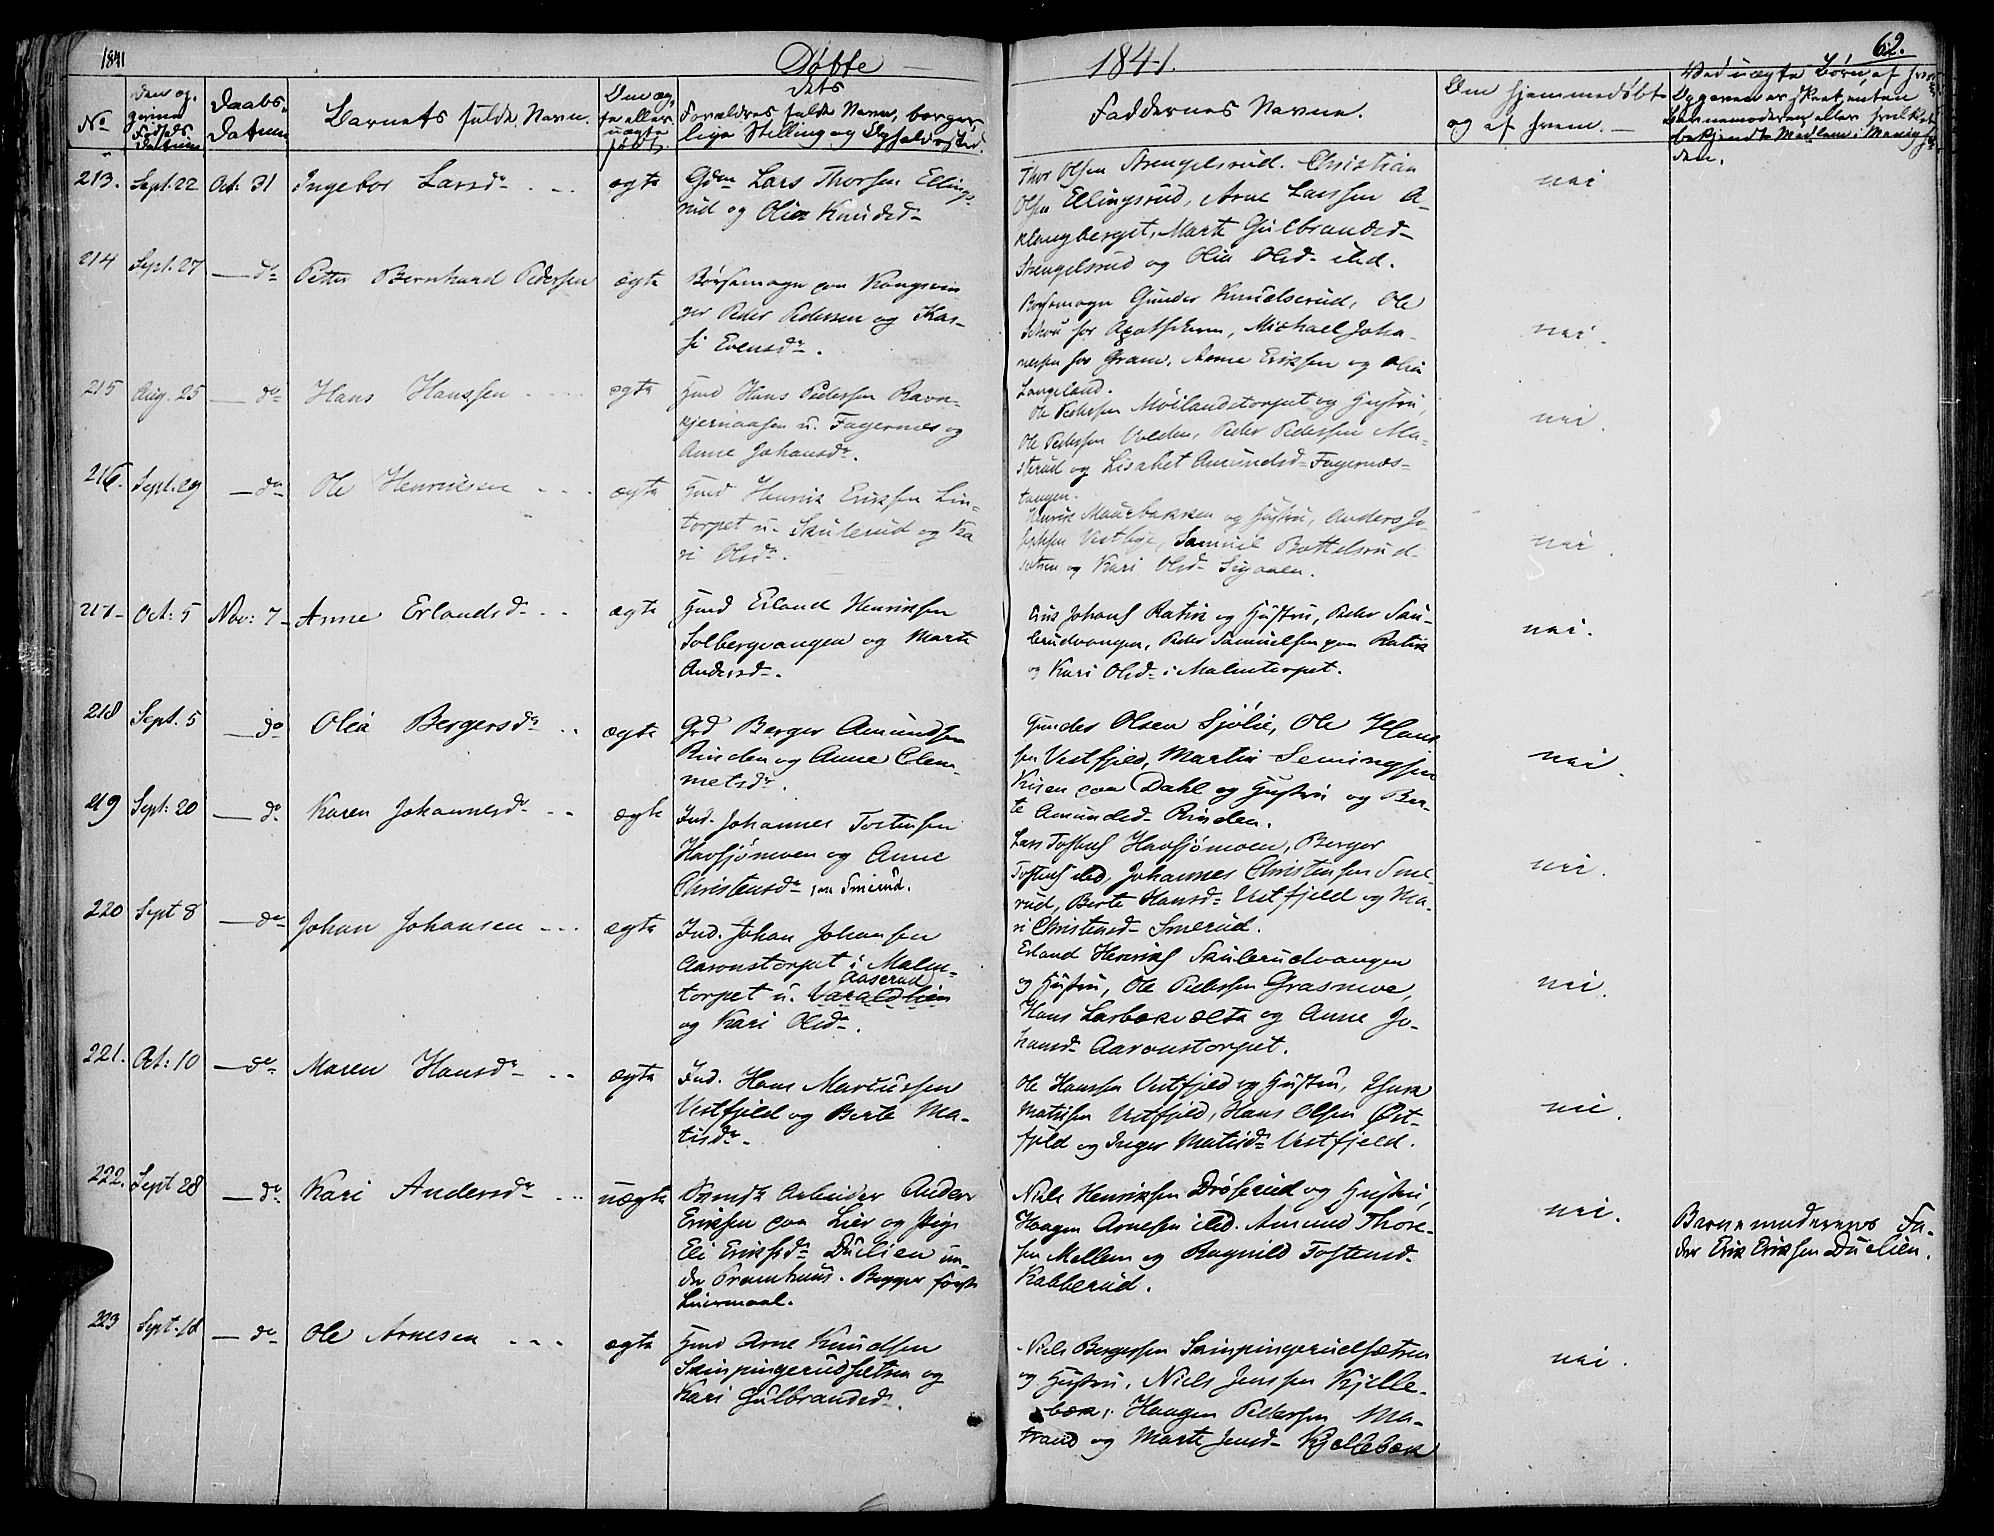 1841
Døbte
1841.
62.
No
Den op-
givne
Fødsels
Datum
Daabs-
Datum
Barnets fulde Navn.
Om æg-
te eller
uægte
født.
dets
Forældres fulde Navn, borger-
lige Stilling og Opholdssted.
Faddernes Navne.
Om hjemmedøbt
og af hvem.
Ved uægte Børn, af hvem
Opgaven er skeet, enten
Barnemoderen eller hvilket
bekjendt Medlem i Menighe-
den.
213. Sept. 22 Oct: 31 Ingebor Larsdr ægte
Gdm Lars Thorsen Ellings-
rud og Olia Knudsd
Thor Olsen Strengelsrud. Christian
Olsen Ellingsrud, Arne Larssen A-
klangberget, Marte Gulbrandsd
Strengelsrud og Olia Olsd ibd.
nei
214 Sept. 27 do Petter Bernhard Pedersen ægte
Børsemager paa Kongsvin-
ger Peder Pedersen og Kar-
i Evensdr.
Børsemager Gunder Knudserud, Ole
for Apothekeren, Michael Joha-
nessen for Gram, Arne Eriksen og Olia
Langeland.
nei.
215 Aug. 25 do Hans Hanssen ægte
Hmd Hans Pedersen Ravn-
kjernaasen u. Fagernes og
Anne Johansdr.
Ole Pedersen Moilandstorpet og Hustru,
Ole Pedersen Volden, Peder Pedersen Ma-
sterud og Lisabet Amundsd Fagernæs-
tangen.
nei.
216. Sept. 29 do Ole Henriksen ægte
Hmd Henrik Eriksen Lin-
torpet u. Skulerud og Ka
ri Olsdr.
Henrik Maurbakken og Hustru, Anders Jo-
Vestbye, Samuel Bottelsrud-
sætren og Kari Olsd Sigaaen.
nei.
217 Oct: 5 Nov: 7 Anne Erlandsd ægte
Hmd Erland Henriksen
Solbergvangen og Marte
Andersd.
Erik Johans Rativk og Hustru, Peder Sku-
lerudvangen, Peder Samuelsen paa Rativk
og Kari Olsd i Malmtorpet.
nei.
218 Sept. 5 do Olia Bergersdr ægte
Grd Berger Amundsen
Rinden og Anne Clem-
metsdr.
Gunder Olsen Sjølie, Ole Hans
sen Vestfjeld, Martin Semingsen
Kusen paa Dahl og Hustru og Ber-
te Amundsd Rinden.
nei.
219 Sept: 20 do Karen Johannesdr ægte
Ind. Johannes Tostensen
Havsjømoen og Anne
Christensdr paa Smerud.
Lars Tostens Havsjømoen, Berger
Tostens ibd, Johannes Christensen Sme-
rud, Berte Hansd Vestfjeld og Ma-
ri Christensd Smerud.
nei.
220 Sept 8 do Johan Johansen ægte
Ind. Johan Johansen
Aaronstorpet i Malm-
Aaserud
torpet u. Varaldlien
og Kari Olsd.
Erland Henriks Skulerudvangen
og Hustru, Ole Pedersen Grasmoe,
Hans Larbækvælta og Anne Jo-
hansd Aaronstorpet.
nei.
221. Oct: 10 do Maren Hansdr ægte
Ind. Hans Marcussen
Vestfjeld og Berte Ma-
tisdr.
Ole Hanssen Vestfjeld og Hustru,
Matissen Vestfjeld, Hans Olsen Øst-
fjeld og Inger Matisdr Vestfjeld.
nei.
222. Sept 28 do Kari Andersdr uægte
Arbeider Anders
Eriksen paa Lier og Pige
Eli Eriksdr Duelien un-
der Pramhuus. Begges første
Leiermaal.
Niels Henriksen Drøserud og Hustru,
Haagen Arnesen ibd. Amund Thore-
sen Mellem og Ragnild Tostensd
Kabberud.
nei.
Barnemoderens Fa-
der Erik Eriksen Duelien.
223 Sept. 18 do Ole Arnesen ægte
Hmd Arne Knudsen
Skinpingerudsetren og
Kari Gulbrandsd.
Niels Bergersen Skinpingerudsætren
og Hustru, Niels Jenssen Kjelle-
bæk, Haagen Pedersen Ma-
trand og Marte Jensd Kjellebæk
nei.